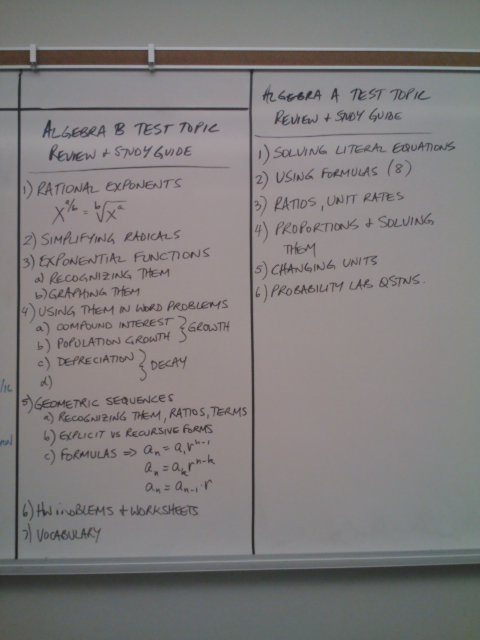 ALGEBRA B TEST TOPIC
REVIEW + STUDY GUIDE
1) RATIONAL EXPONENTS
x^a/b = b√x^a
2) SIMPLIFYING RADICALS
3) EXPONENTIAL FUNCTIONS
a) RECOGNIZING THEM
b) GRAPHING THEM
4) USING THEM IN WORD PROBLEMS
a) COMPOUND INTEREST } GROWTH
b) POPULATION GROWTH
c) DEPRECIATION } DECAY
d)
5) GEOMETRIC SEQUENCES
a) RECOGNIZING THEM, RATIOS, TERMS
b) EXPLICIT VS RECURSIVE FORMS
c) FORMULAS ⇒ aₙ = a₁rⁿ⁻¹
aₙ = aₖrⁿ⁻ᵏ
aₙ = aₙ₋₁·r
6) HW + WORKSHEETS
7) VOCABULARY
ALGEBRA A TEST TOPIC
REVIEW + STUDY GUIDE
1) SOLVING LITERAL EQUATIONS
2) USING FORMULAS (8)
3) RATIOS, UNIT RATES
4) PROPORTIONS + SOLVING
THEM
5) CHANGING UNITS
6) PROBABILITY LAB QSTNS.